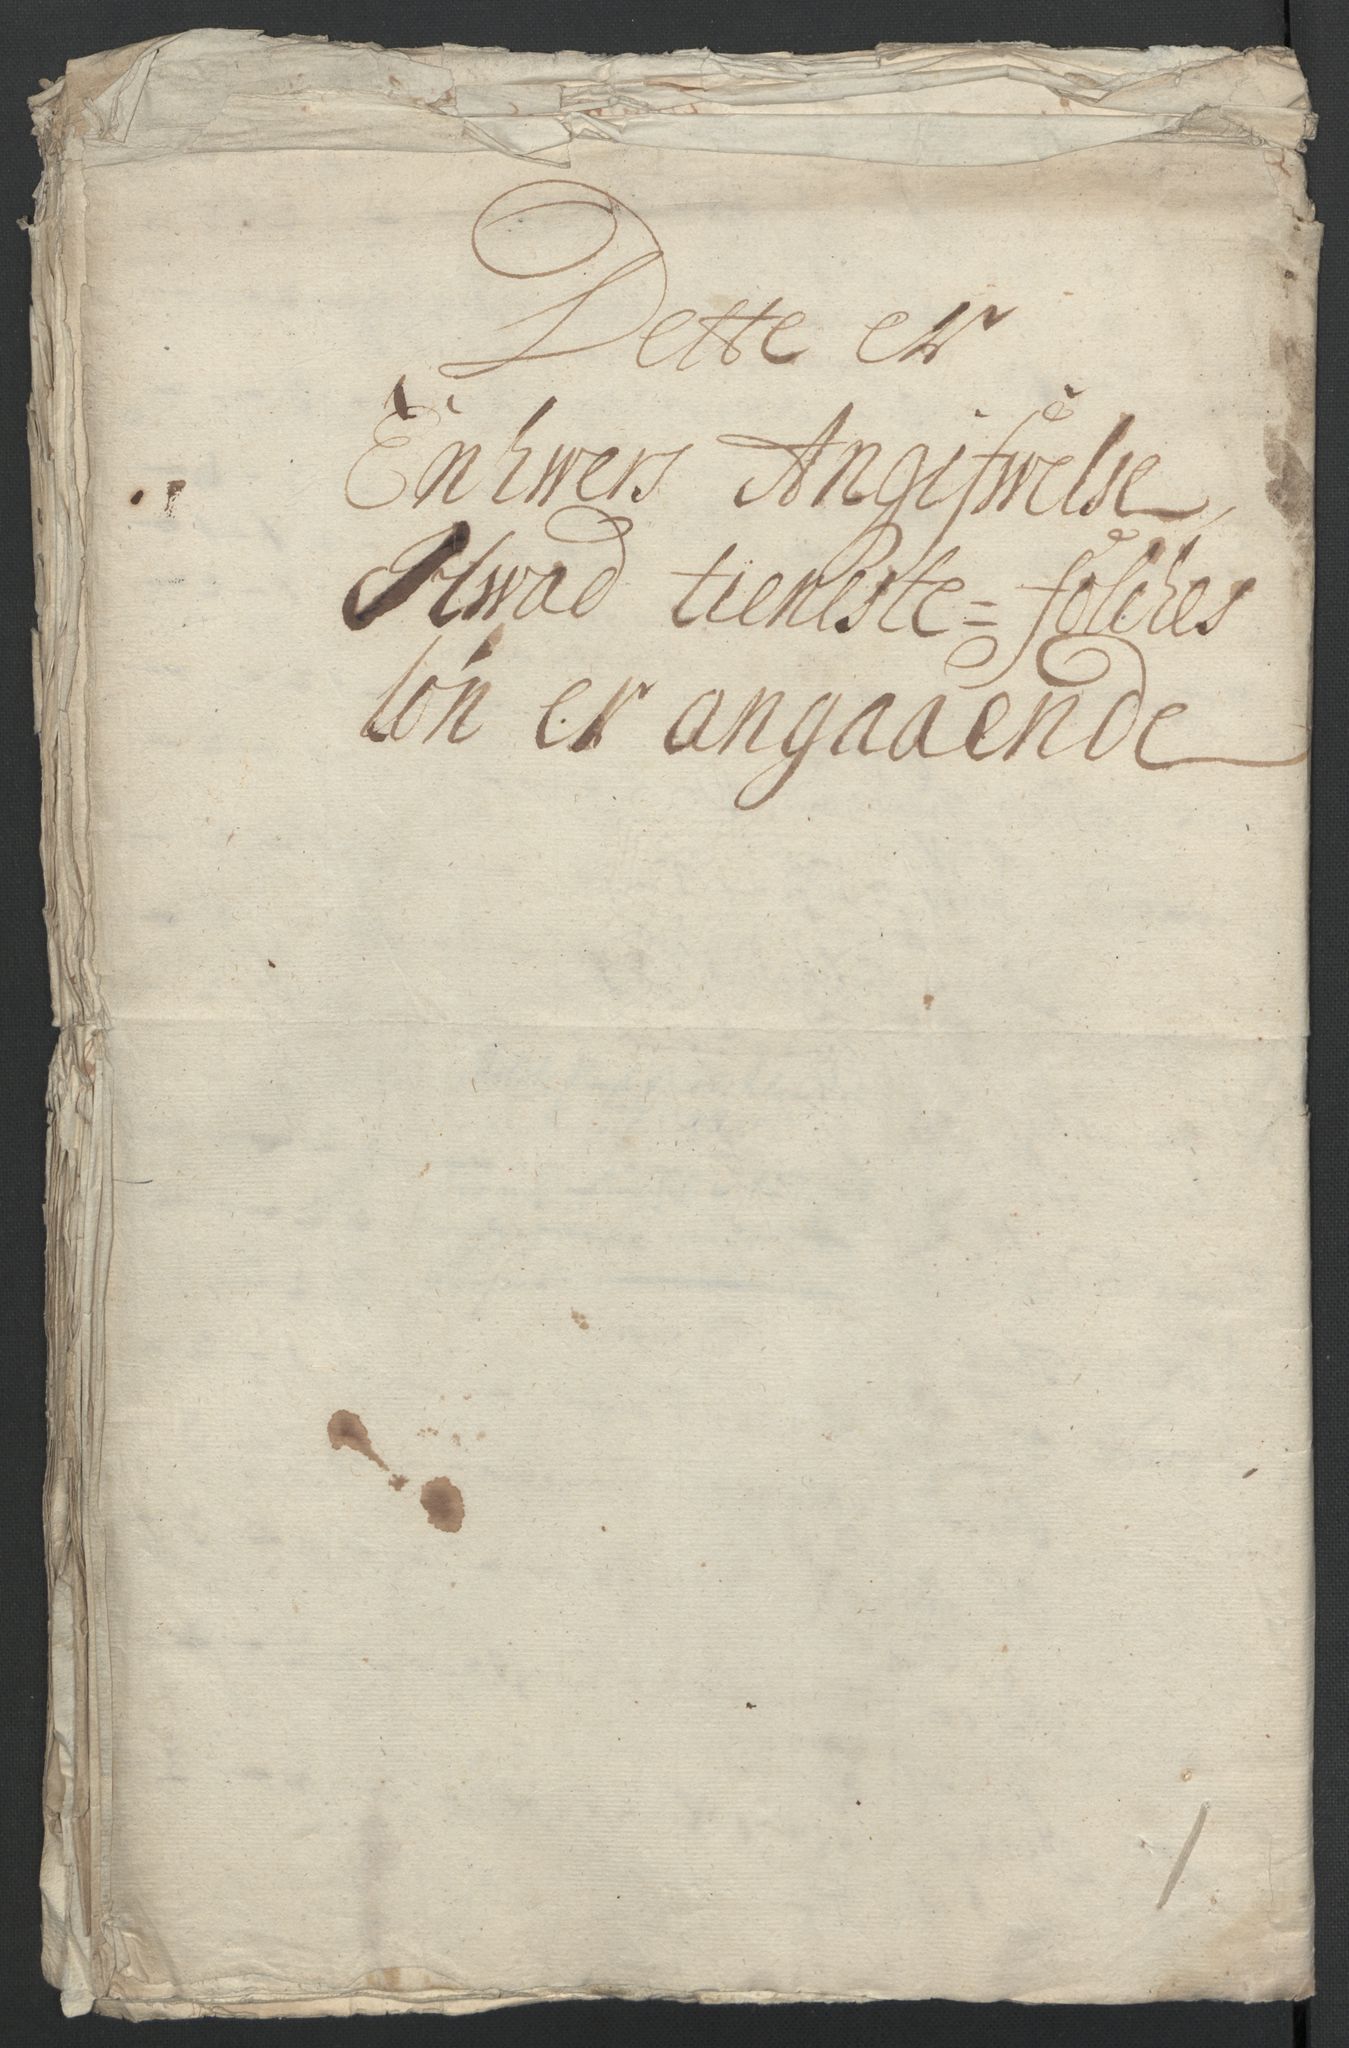 Dette er
Enhwers Angifwelse,
Hwad tieniste=folckes
lön er angaaende
1